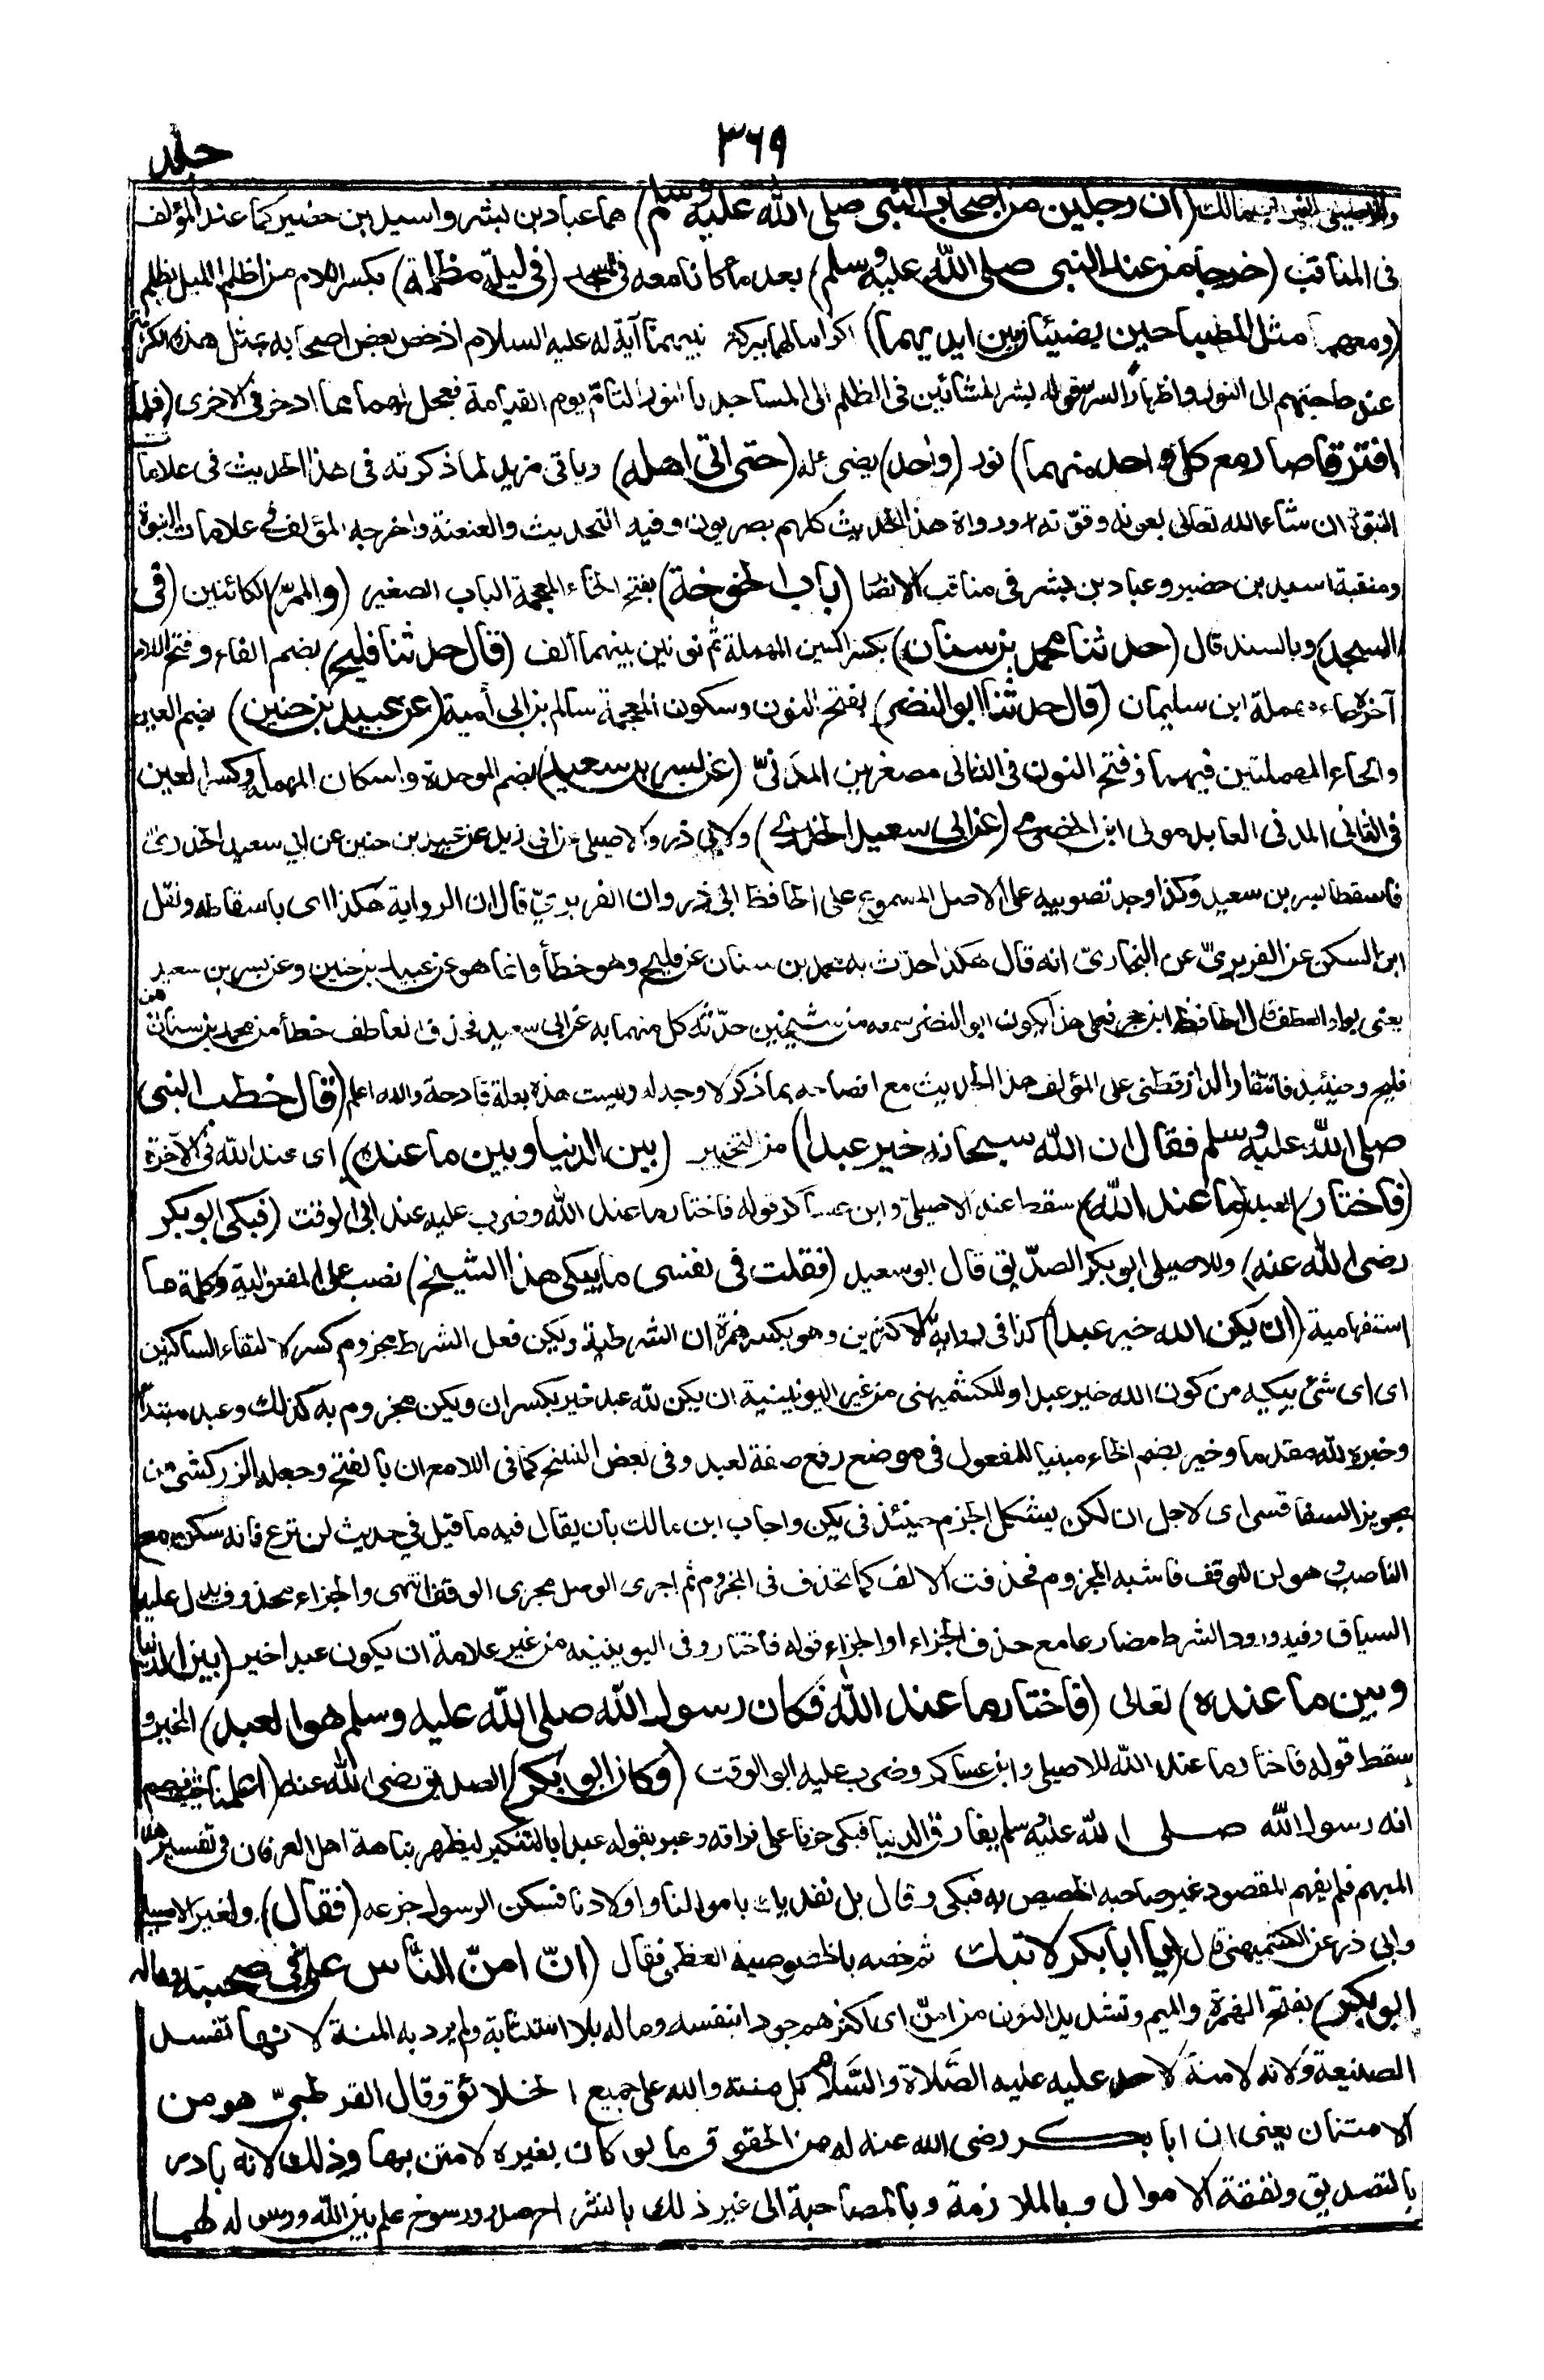 ٣٦٩
جلد
(ان رجلين من اصحاب النبي صلى الله عليه وسلم) هما عباد بن بشر واسيد بن حضير كما عند المؤلف
فى المناقب (خرجا من عند النبى صلى الله عليه وسلم) بعد ما كانا معه فى المسجد (فى ليلة مظلمة) بكسر اللام من اظلم الليل يظلم
(ومعهما مثل المصباحين يضيئان بين ايديهما) اكراما لهما ببركة نبيهما آية له عليه السلام اذ خص بعض اصحابه بمثل هذه الكرامة
عند حاجتهم الى النور واظهارا لسر قوله بشر المشائين فى الظلم الى المساجد بالنور التام يوم القيامة فعجل لهما مما ادخر فى الاخرى (فلما
افترقا صار مع كل واحد منهما) نور (واحد) يضىء له (حتى اتى اهله) وياتى مزيد لما ذكرته فى هذا الحديث فى علامات
النبوة ان شاء الله تعالى بعونه وقوته ورواة هذا الحديث كلهم بصريون وفيه التحديث والعنعنة واخرجه المؤلف فى علامات النبوة
ومنقبة اسيد بن حضير وعباد بن بشر فى مناقب الانصار (باب الخوخة) بفتح الخاء المعجمة الباب الصغير (والممر) الكائنين (فى
المسجد) وبالسند قال (حدثنا محمد بن سنان) بكسر السين المهملة ثم نونين بينهما الف (قال حدثنا فليح) بضم الفاء وفتح اللام
آخره حاء مهملة ابن سليمان (قال حدثنا ابو النضر) بفتح النون وسكون المعجمة سالم بن ابى أمية (عن عبيد بن حنين) بضم العين
والحاء المهملتين فيهما وفتح النون فى الثانى مصغرين المدنىّ (عن بسر بن سعيد) بضم الموحدة واسكان المهملة وكسر العين
فى الثانى المدنى العابد مولى ابن الحضرمى (عن ابى سعيد الخدرى) ولابى ذر والاصيلى عن ابى زيد عن عبيد بن حنين عن ابي سعيد الخدرى
فاسقطا بسر بن سعيد وكذا وجد تصويبه على الاصل المسموع على الحافظ ابى ذر وان الفربرىّ قال ان الرواية هكذا اى باسقاطه ونقل
ابن السكن عن الفربرىّ عن البخارىّ انه قال هكذا حدّث به محمد بن سنان عن فليح وهو خطأ وانما هو عن عبيد بن حنين وعن بسر بن سعيد
يعنى بواو العطف قال الحافظ ابن حجر فعلى هذا يكون ابو النضر سمعه من شيخين حدّثه كل منهما به عن ابى سعيد فحذف العاطف خطأ من محمد بن سنان او من
فليح وحينئذ فانتقاد الدارقطنى على المؤلف هذا الحديث مع افصاحه بما ذكر لا وجه له وليست هذه بعلة قادحة والله اعلم (قال خطب النبى
صلى الله عليه وسلم فقال ان الله سبحانه خير عبدا) من التخيير (بين الدنيا وبين ما عنده) اى عند الله فى الآخرة
(فاختار) العبد (ما عند الله) سقط عند الاصيلىّ وابن عساكر قوله فاختار ما عند الله وضرب عليه عند ابى الوقت (فبكى ابو بكر
رضى الله عنه) وللاصيلى ابو بكر الصدّيق قال ابو سعيد (فقلت فى نفسى ما يبكى هذا الشيخ) نصب على المفعولية وكلمة ما
استفهامية (ان يكن الله خير عبدا) كذا فى رواية الاكثرين وهو بكسر همزة ان الشرطية ويكن فعل الشرط مجزوم كسر لالتقاء الساكنين
اى اى شئ يبكيه من كون الله خير عبدا وللكشميهنى من غير اليونينية ان يكن لله عبد خير بكسر ان ويكن مجزوم به كذلك وعبد مبتدأ
وخبره لله مقدما وخير بضم الخاء مبنيا للمفعول فى موضع رفع صفة لعبد وفى بعض النسخ كما فى اللامع ان بالفتح وجعله الزركشى من
تجويز السفاقسى اى لاجل ان لكن يشكل الجزم حينئذ فى يكن واجاب ابن مالك بان يقال فيه ما قيل فى حديث لن ترع فانه سكن مع
الناصب وهو لن للوقف فاشبه المجزوم فحذفت الالف كما تحذف فى المجزوم ثم اجرى الوصل مجرى الوقف انتهى والجزاء محذوف يدل عليه
السياق وفيه ورود الشرط مضارعا مع حذف الجزاء او الجزاء قوله فاختار وفى اليونينيه من غير علامة ان يكون عبدا خير (بين الدنيا
وبين ما عنده) تعالى (فاختار ما عند الله فكان رسول الله صلى الله عليه وسلم هو العبد) المخير و
سقط قوله فاختار ما عند الله للاصيلى وابن عساكر وضرب عليه ابو الوقت (وكان ابو بكر) الصديق رضى الله عنه (اعلمنا) حيث فهم
انه رسول الله صلى الله عليه وسلم يفارق الدنيا فبكى حزنا على فراقه وعبر بقوله عبدا بالتنكير ليظهر نباهة اهل العرفان فى تفسير هذا
المبهم فلم يفهم المقصود غير صاحبه الخصيص به فبكى وقال بل نفديك باموالنا واولادنا فسكن الرسول جزعه (فقال) ولغير الاصيلى
وابى ذر عن الكشميهنى قال (يا ابا بكر لا تبك) ثم خصه بالخصوصية العظمى فقال (انّ امنّ الناس علىّ فى صحبته وماله
ابو بكر) بفتح الهمزة والميم وتشديد النون من امنّ اى اكثرهم جودا بنفسه وماله بلا استثابة ولم يرد به المنة لانها تفسد
الصنيعة ولانه لا منة لاحد عليه عليه الصلاة والسلام بل منته والله على جميع الخلائق وقال القرطبىّ هو من
الامتنان يعنى ان ابا بكر رضى الله عنه له من الحقوق ما لو كان لغيره لامتن بها وذلك لانه بادر
بالتصديق ونفقة الاموال وبالملازمة وبالمصاحبة الى غير ذلك بانشراح صدر ورسوخ علم بان الله ورسوله لهما